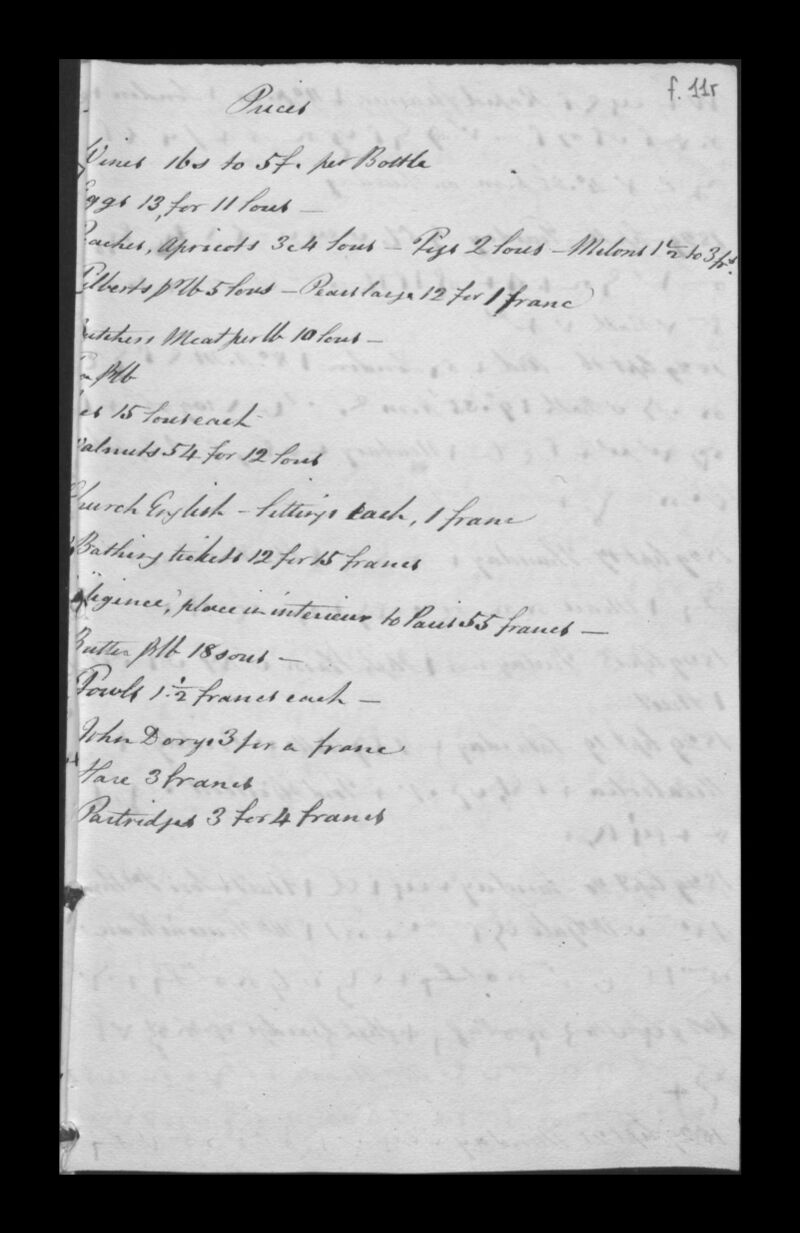 f. 11r
Prices
Wines 16s to 5f. per Bottle
Eggs 13 for 11 sous —
Peaches, Apricots 3 & 4 sous – Figs 2 sous – Melons 1 1/2 to 3 frs.
Filberts pr lb 5 sous – Pears large 12 for 1 franc
Butchers Meat per lb 10 sous –
pr lb
15 sous each
Walnuts 54 for 12 sous
Church English – Sittings each, 1 franc
Bathing tickets 12 for 15 francs
Diligence, place in interieur to Paris 55 francs —
Butter pr lb 18 sous —
Fowls 1 1/2 francs each —
John Dorys 3 for a franc
Hare 3 francs
Partridges 3 for 4 francs